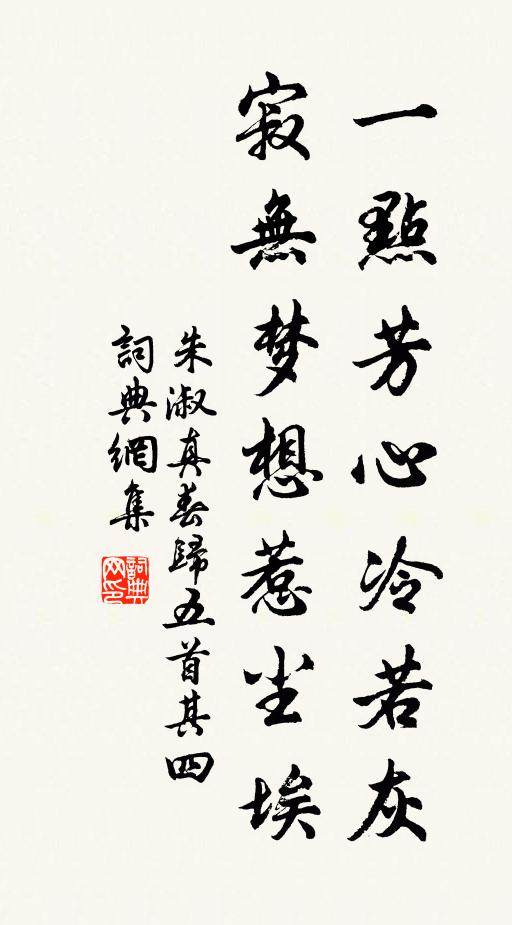 一點芳心冷若灰
寂無梦想惹尘埃
朱淑真春歸五首其四
詞典網集
詞典网印